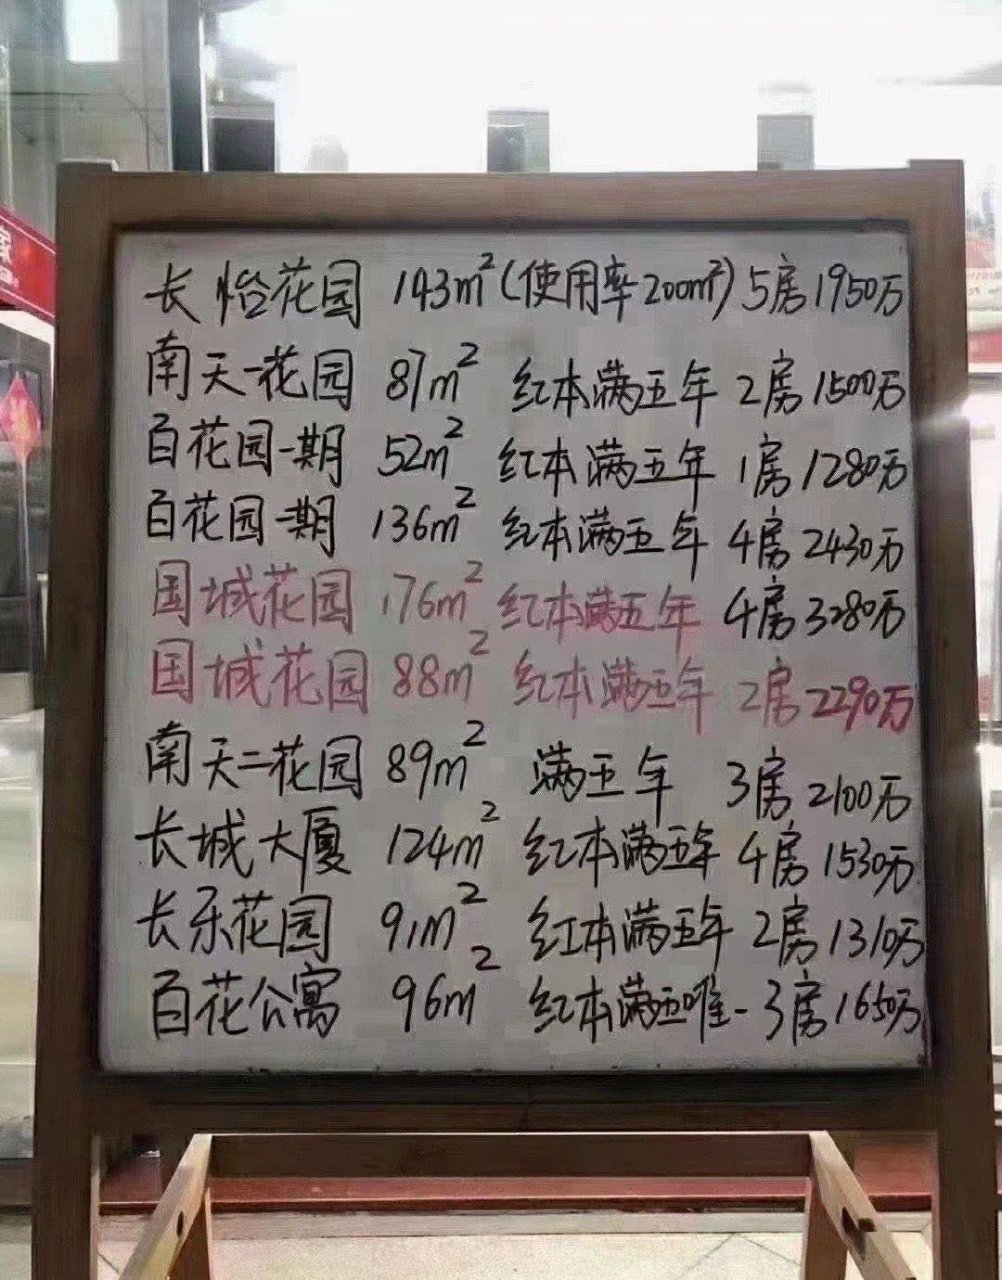 长怡花园 143m²(使用率200m²) 5房1950万
南天一花园 87m² 红本满五年 2房1500万
百花园一期 52m² 红本满五年 1房1280万
百花园一期 136m² 红本满五年 4房2430万
国城花园 176m² 红本满五年 4房3280万
国城花园 88m² 红本满五年 2房2290万
南天二花园 89m² 满五年 3房2100万
长城大厦 124m² 红本满五年 4房1530万
长乐花园 91m² 红本满五年 2房1310万
百花公寓 96m² 红本满五唯一 3房1650万